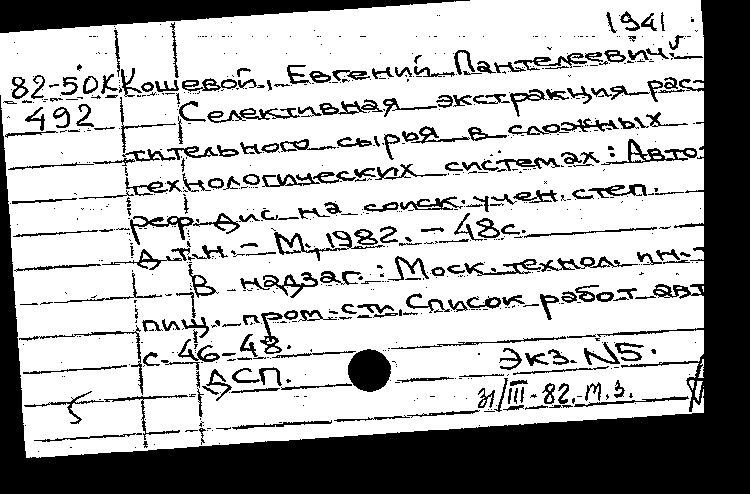 1941
82-5ДК Кошевой, Евгений Пантелеевич.
492 Селективная экстракция рас-
тительного сырья в сложных
технологических системах: Авто-
реф. дис. на соиск. учен. степ.
д.т.н. - М., 1982. - 48с.
В надзаг.: Моск. технол. ин-т
пищ. пром-сти. Список работ авт
с. 46-48.
ДСП. Экз. N5.
5 31/III-82. м.з.